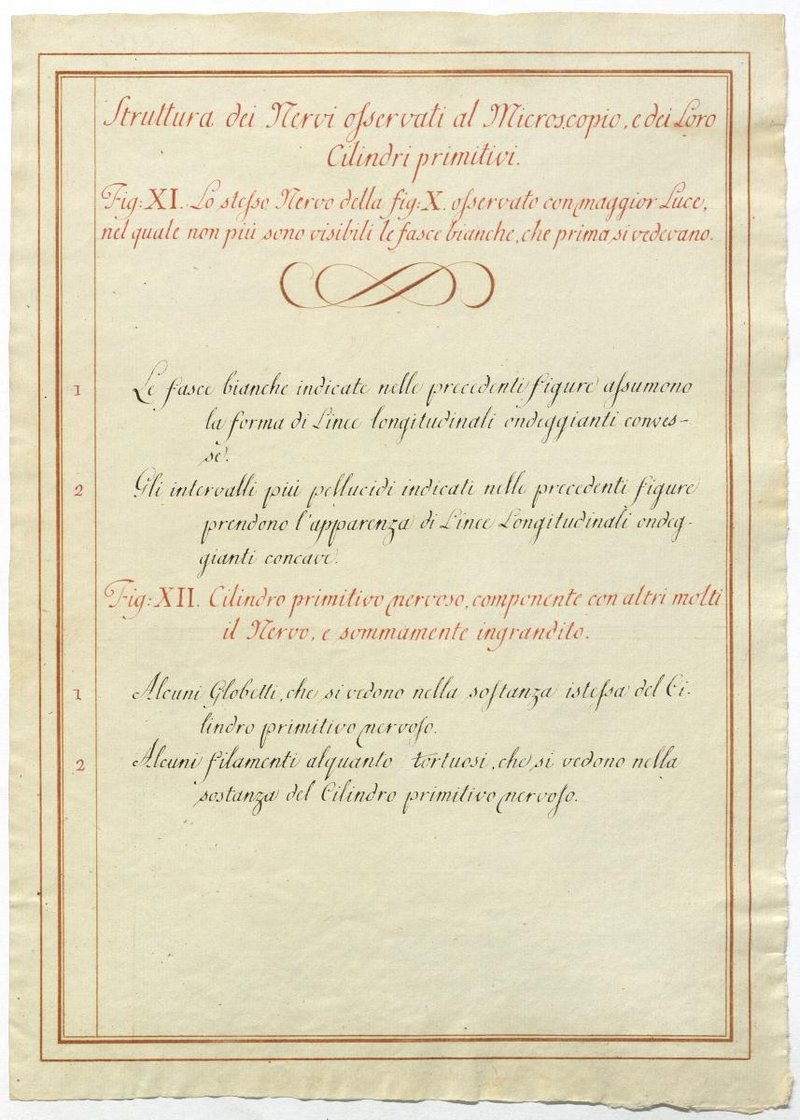 Struttura dei Nervi oſservati al Microscopio, e dei Loro
Cilindri primitivi.
Fig: XI. Lo steſso Nervo della fig: X. oſservato con maggior Luce,
nel quale non più sono visibili le fasce bianche, che prima si vedevano.
1 Le fasce bianche indicate nelle precedenti figure aſsumono
la forma di Linee longitudinali ondeggianti conves-
se.
2 Gli intervalli più pellucidi indicati nelle precedenti figure
prendono l'apparenza di Linee Longitudinali ondeg-
gianti concave.
Fig: XII. Cilindro primitivo nervoso, componente con altri molti
il Nervo, e sommamente ingrandito.
1 Alcuni Globetti, che si vedono nella soſtanza isteſsa del Ci-
lindro primitivo nervoſo.
2 Alcuni filamenti alquanto tortuosi, che si vedono nella
sostanza del Cilindro primitivo nervoſo.